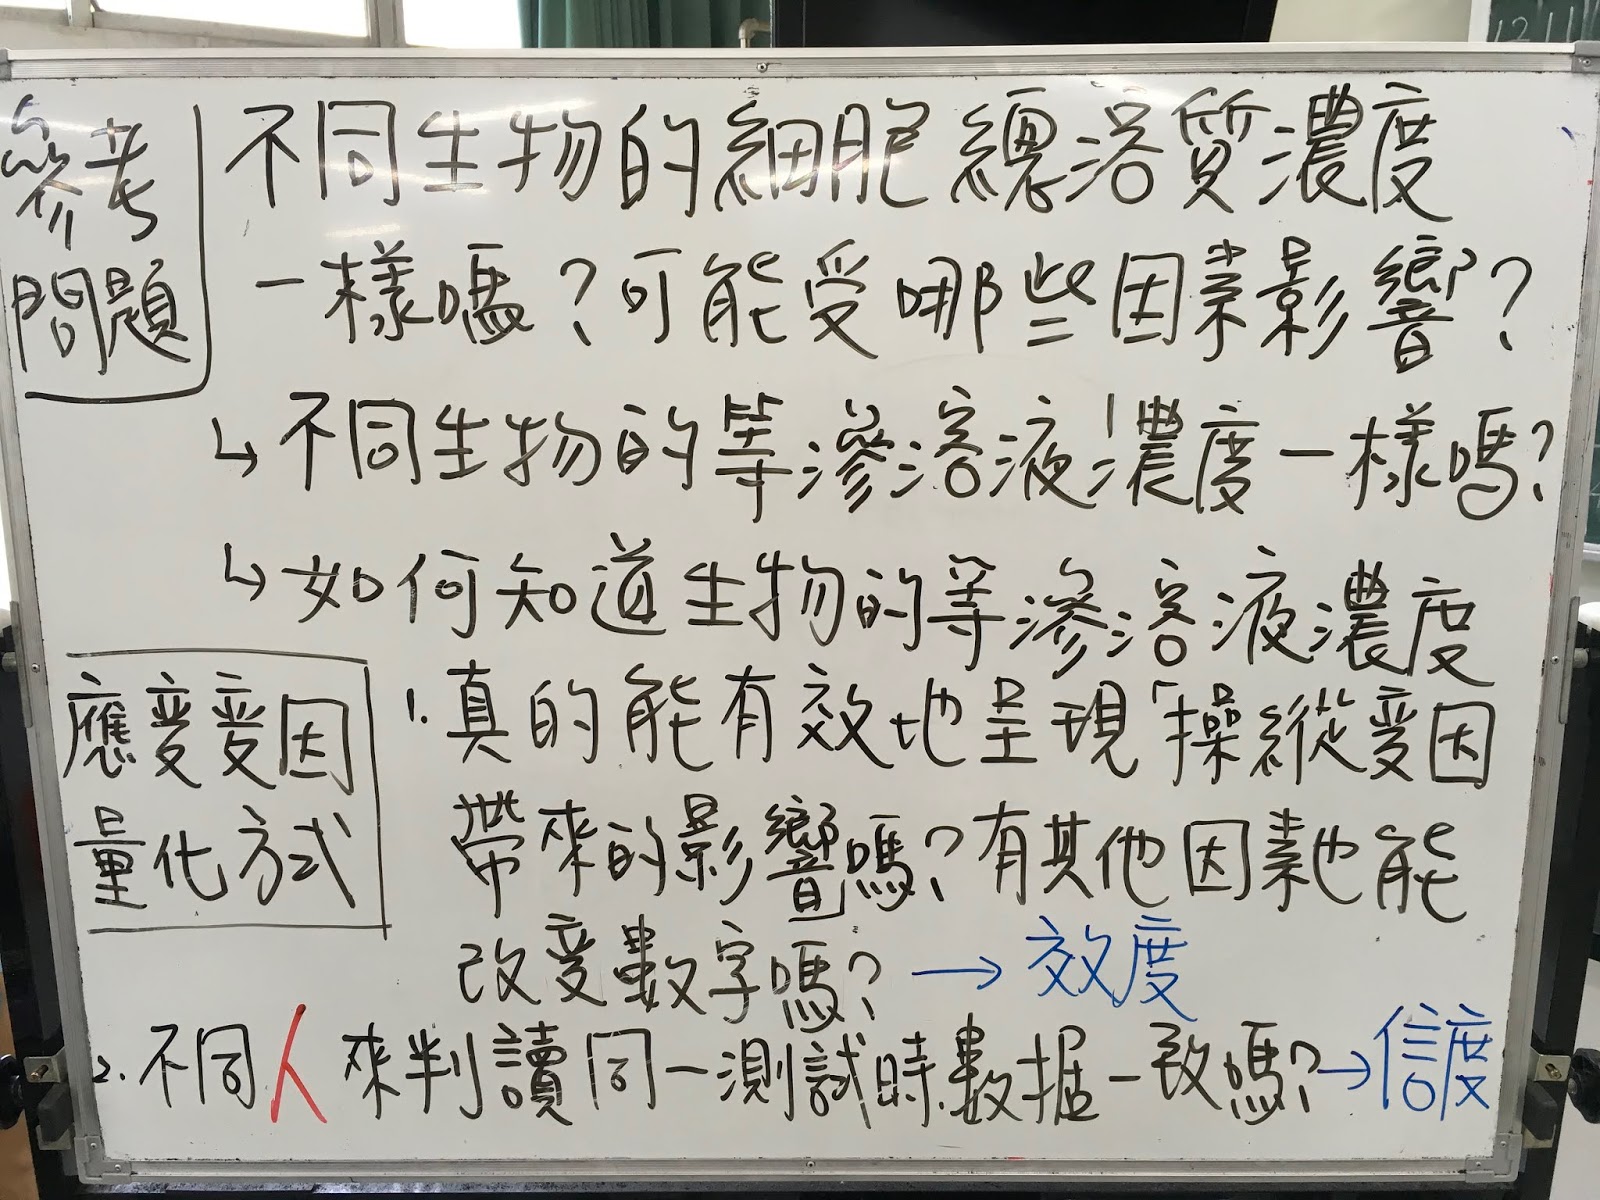 參考
問題
不同生物的細胞總溶質濃度
一樣嗎?可能受哪些因素影響?
↳不同生物的等滲溶液濃度一樣嗎?
↳如何知道生物的等滲溶液濃度
應變變因
量化方式
1.真的能有效地呈現「操縱變因
帶來的影響嗎?有其他因素也能
改變數字嗎?→效度
2.不同人來判讀同一測試時數據一致嗎?→信度